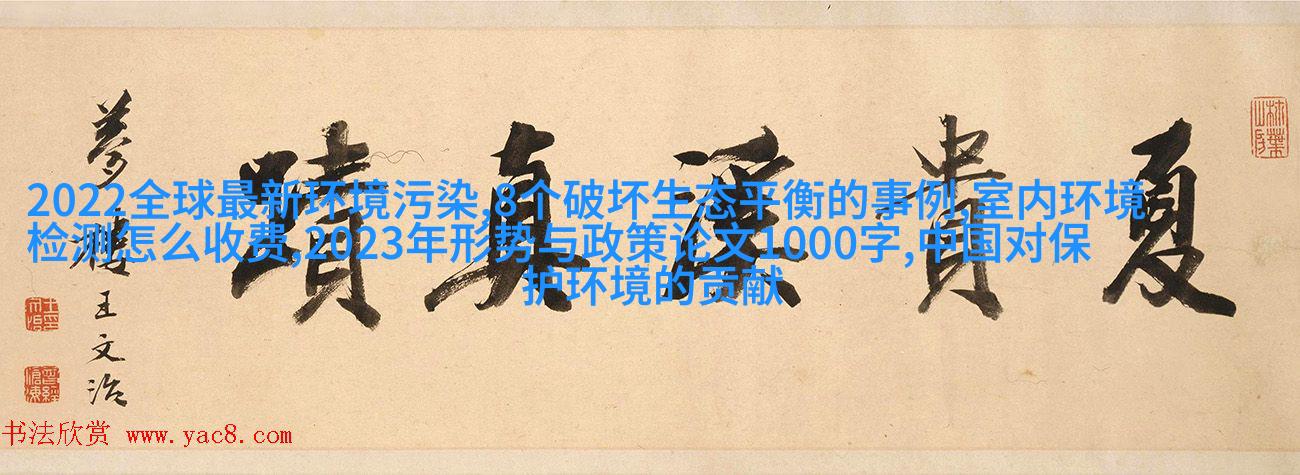 夏貴溪真蹟
夢樓王文治
2022全球最新环境污染,8个破坏生态平衡的事例,室内环境
检测怎么收费,2023年形势与政策论文1000字,中国对保
护环境的贡献
曾經滄海
书法欣赏 www.yac8.com